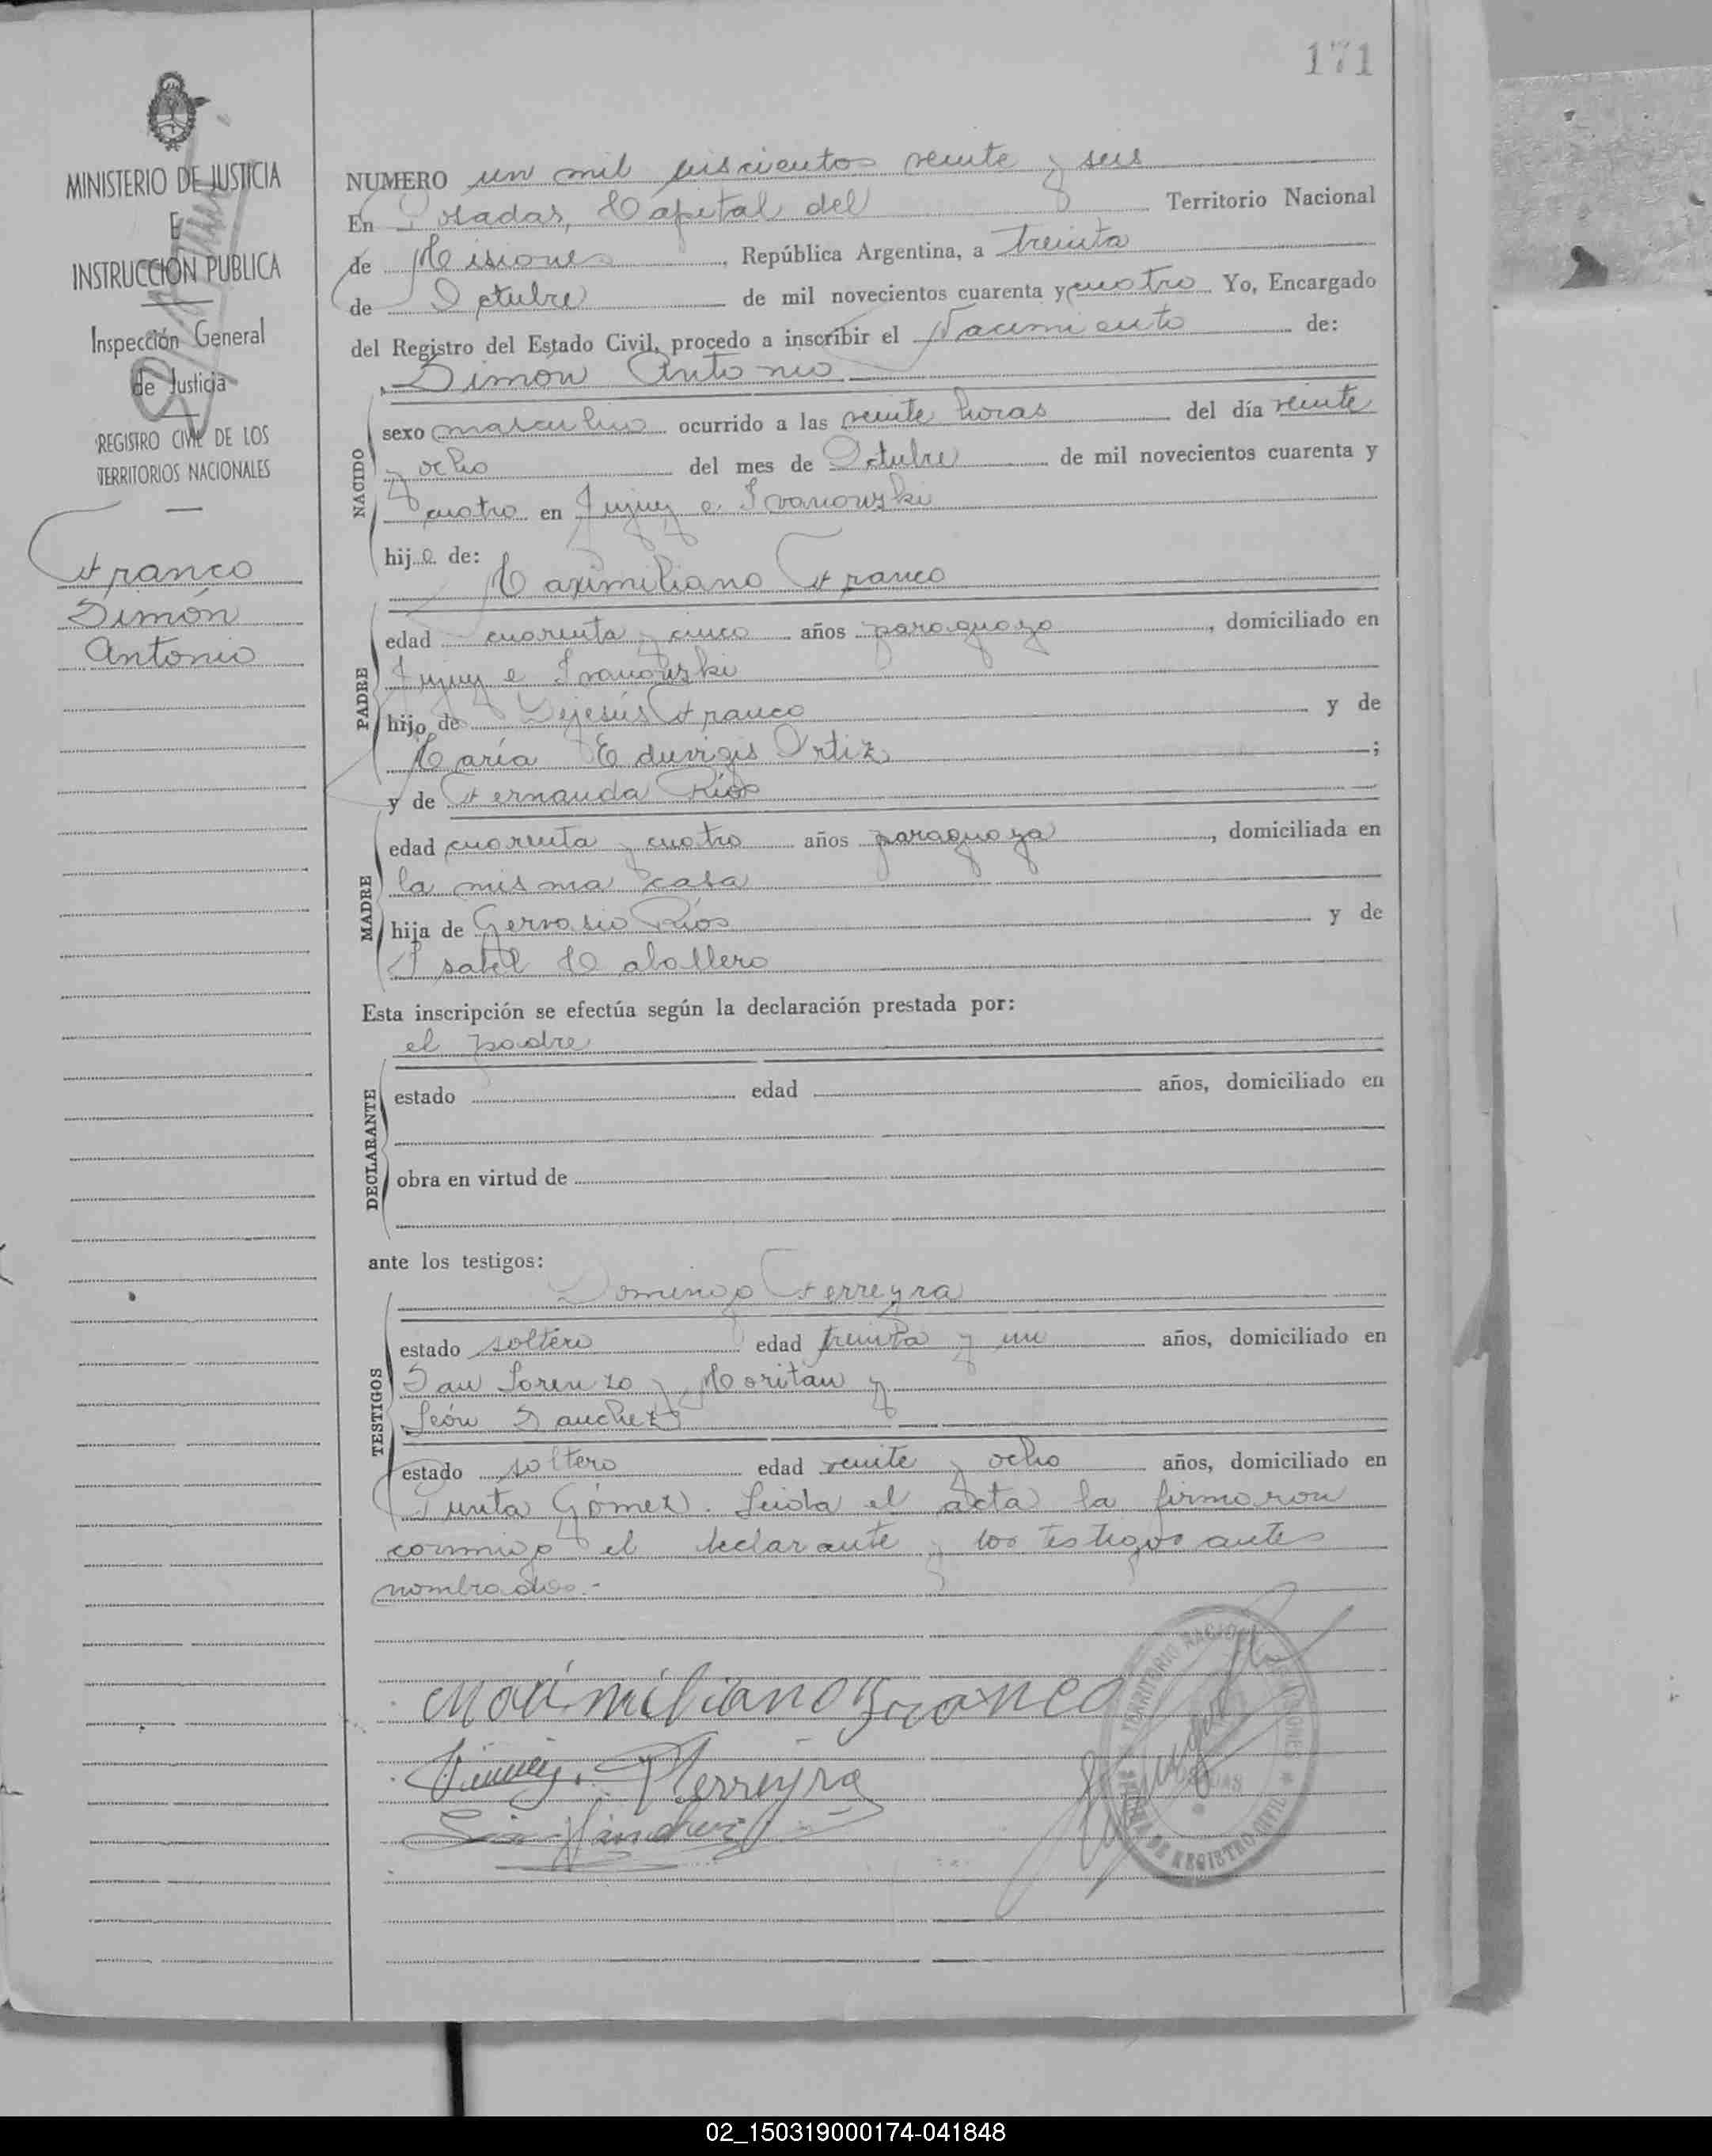 171
MINISTERIO DE JUSTICIA
E
INSTRUCCIÓN PUBLICA
Inspección General
de Justicia
REGISTRO CIVIL DE LOS
TERRITORIOS NACIONALES
Franco
Simón
Antonio
NUMERO un mil seiscientos veinte y seis
En Posadas, Capital del Territorio Nacional
de Misiones, República Argentina, a treinta
de Octubre de mil novecientos cuarenta y cuatro Yo, Encargado
del Registro del Estado Civil, procedo a inscribir el Nacimiento de:
Simón Antonio
NACIDO
sexo masculino ocurrido a las veinte horas del día veinte
y ocho del mes de Octubre de mil novecientos cuarenta y
cuatro en Jujuy e Ivanowski
hijo de:
Maximiliano Franco
PADRE
edad cuarenta y cinco años paraguayo, domiciliado en
Jujuy e Ivanowski
hijo de Dejesús Franco y de
María Eduvigis Ortiz;
y de Fernanda Ríos
MADRE
edad cuarenta y cuatro años paraguaya, domiciliada en
la misma casa
hija de Gervasio Ríos y de
Isabel Caballero
Esta inscripción se efectúa según la declaración prestada por:
el padre
DECLARANTE
estado edad años, domiciliado en
obra en virtud de
ante los testigos:
Domingo Ferreyra
TESTIGOS
estado soltero edad treinta y un años, domiciliado en
San Lorenzo y Moritan y
León Sanchez
estado soltero edad veinte y ocho años, domiciliado en
Punta Gómez. Leida el acta la firmaron
conmigo el declarante y los testigos antes
nombrados.-
Maximiliano Franco
Ferreyra
Sánchez
TERRITORIO NACIONAL DE MISIONES
POSADAS
DE REGISTRO CIVIL
02_150319000174-041848